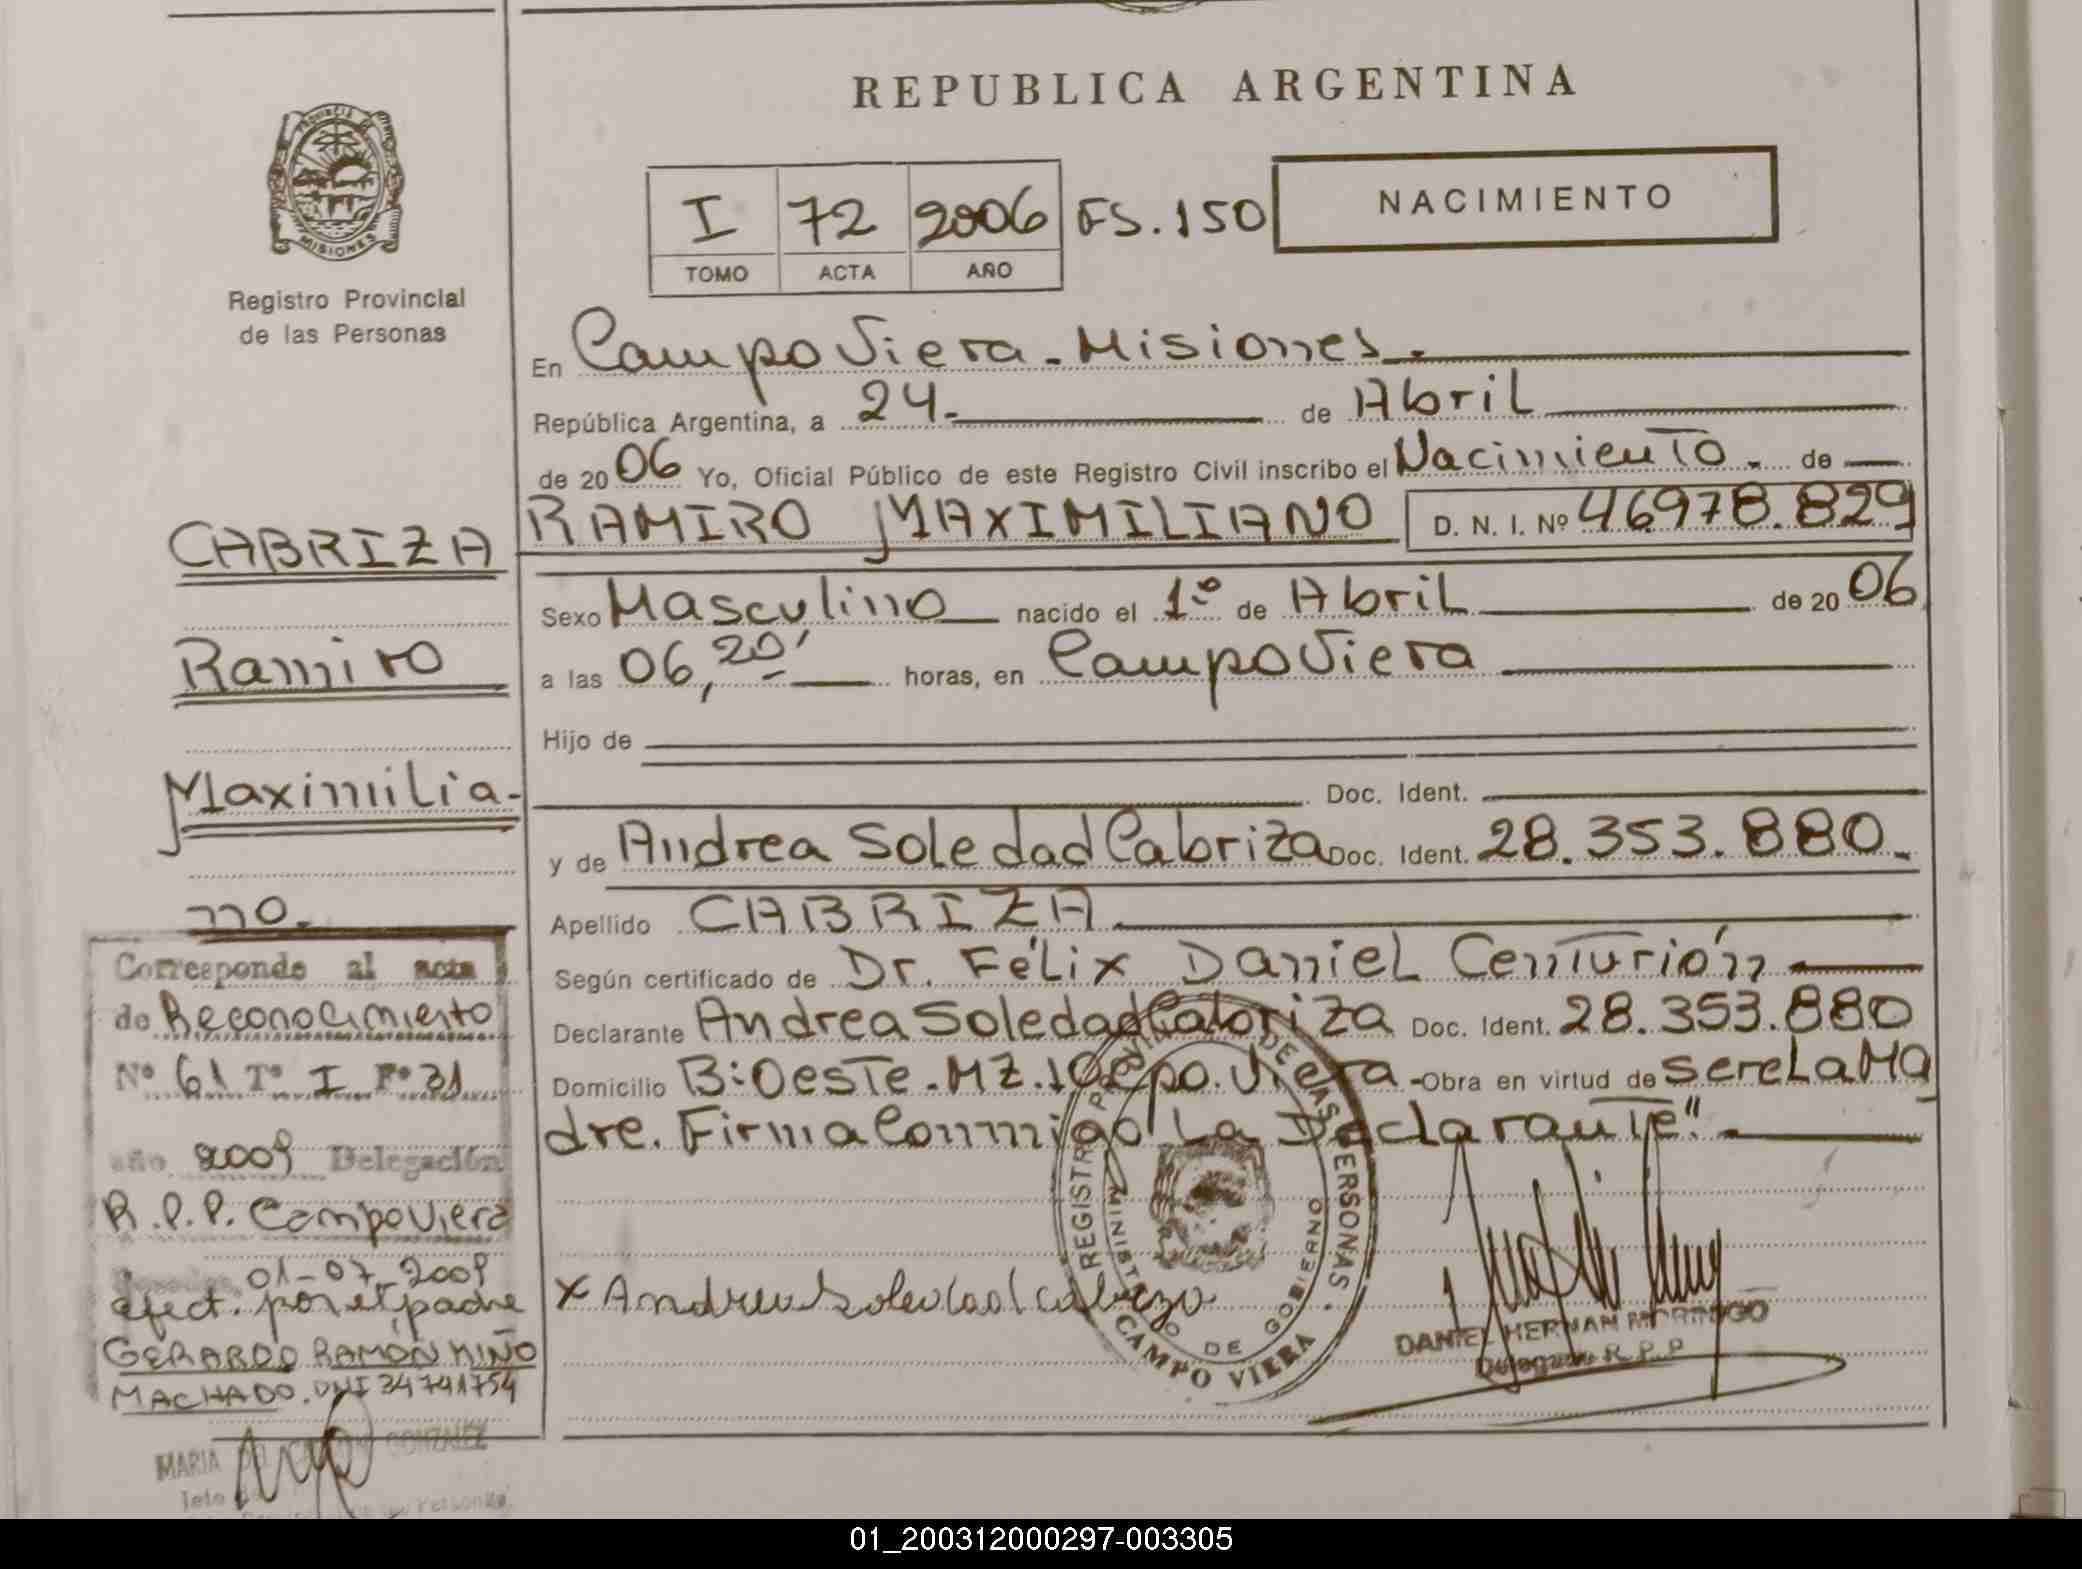 REPUBLICA ARGENTINA
PROVINCIA DE
MISIONES
Registro Provincial
de las Personas
I 72 2006 FS.150
TOMO ACTA AÑO
NACIMIENTO
En Campo Viera - Misiones.
República Argentina, a 24. de Abril
de 20 06 Yo, Oficial Público de este Registro Civil inscribo el Nacimiento. de
RAMIRO MAXIMILIANO D. N. I. Nº 46978.829
Sexo Masculino nacido el 1º de Abril de 20 06
a las 06,20' horas, en Campo Viera
Hijo de
Doc. Ident.
y de Andrea Soledad Cabriza Doc. Ident. 28.353.880.
Apellido CABRIZA
Según certificado de Dr. Félix Daniel Centurión
Declarante Andrea Soledad Cabriza Doc. Ident. 28.353.880
Domicilio B:Oeste.MZ.10Cpo.Viera.- Obra en virtud de ser la Ma
dre. Firma Conmigo "La Declarante".
x Andrea Soledad Cabriza
REGISTRO PROVINCIAL DE LAS PERSONAS
MINISTERIO DE GOBIERNO
CAMPO VIERA
DANIEL HERNAN
R.P.P
CABRIZA
Ramiro
Maximilia-
no.
Corresponde al acta
de Reconocimiento
Nº 61 Tº I Fº 31
año 2009 Delegación
R.P.P. Campo Viera
01-07-2009
efect. por el padre
GERARDO RAMÓN MIÑO
MACHADO. DNI 34741754
MARIA DEL CARMEN GONZALEZ
01_200312000297-003305